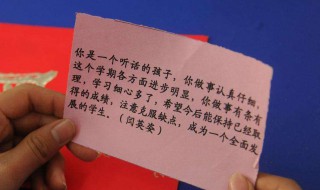 你是一个听话的孩子，你做事认真仔细，
这个学期各方面进步明显，你做事有条有
理，学习细心多了，希望今后能保持已经取
得的成绩，注意克服缺点，成为一个全面发
展的学生、（闫英姿）